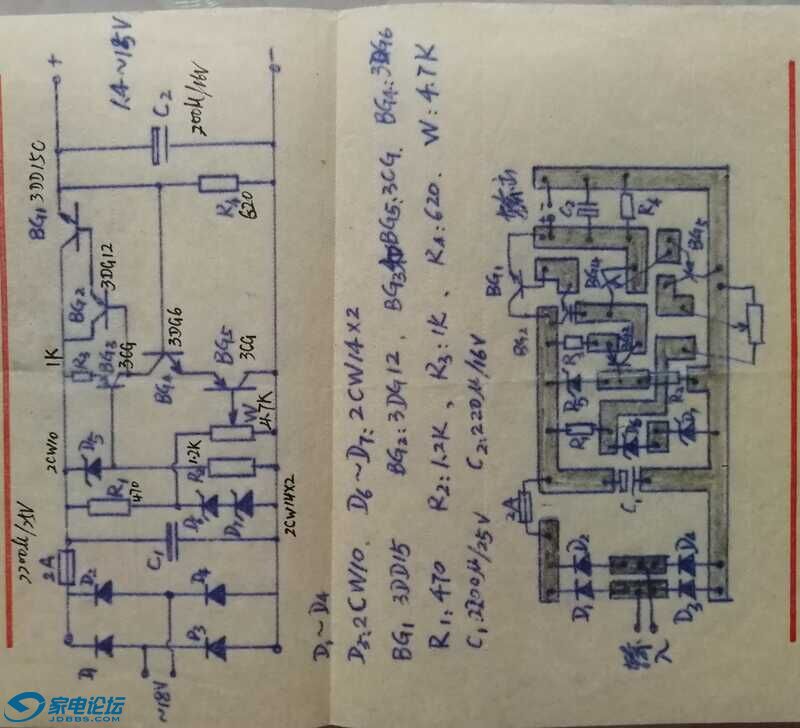 1.4~18V
BG₁ 3DD15C
+
-
C₂
200μ/16V
R₄
620
BG₂
3DG12
1K
R₃
BG₃
3CG
3DG6
BG₄
BG₅
3CG
2CW10
D₅
W
4.7K
R₂
1.2K
R₁
470
D₆
D₇
2CW14X2
2200μ/25V
2A
C₁
D₂
D₄
D₁
D₃
~18V
D₁~D₄
D₅:2CW10、D₆~D₇:2CW14X2
BG₁ 3DD15 BG₂:3DG12、BG₃ BG₅:3CG、BG₄:3DG6
R₁:470 R₂:1.2K、R₃:1K、R₄:620、W:4.7K
C₁2200μ/25V C₂:220μ/16V
输出
+
-
C₂
R₄
BG₁
BG₂
BG₄
BG₅
BG₃
R₃
D₅
R₂
R₁
D₆
D₇
2A
C₁
D₁
D₂
D₃
D₂
输入
家电论坛
JDBBS.COM